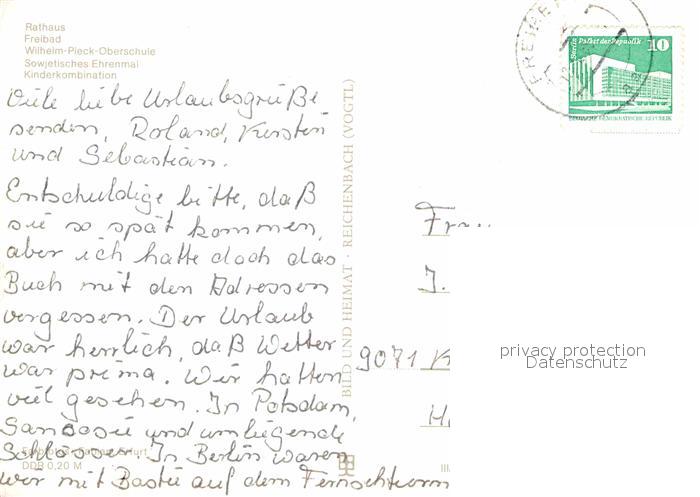 Rathaus
Freibad
Wilhelm-Pieck-Oberschule
Sowjetisches Ehrenmal
Kinderkombination
Viele liebe Urlaubsgrüße
senden, Roland, Kerstin
und Sebastian.
Entschuldige bitte, daß
sie so spät kommen,
aber ich hatte doch das
Buch mit den Adressen
vergessen. Der Urlaub
war herrlich, daß Wetter
war prima. Wir hatten
viel gesehen. In Potsdam,
Sansosie und umliegende
Schlösser. In Berlin waren
wir mit Basti auf dem Fernsehturm
DDR 0,20 M
BILD UND HEIMAT · REICHENBACH (VOGTL)
III
Berlin Palast der Republik
10
DEUTSCHE DEMOKRATISCHE REPUBLIK
Frau
J.
9071 K
H
privacy protection
Datenschutz